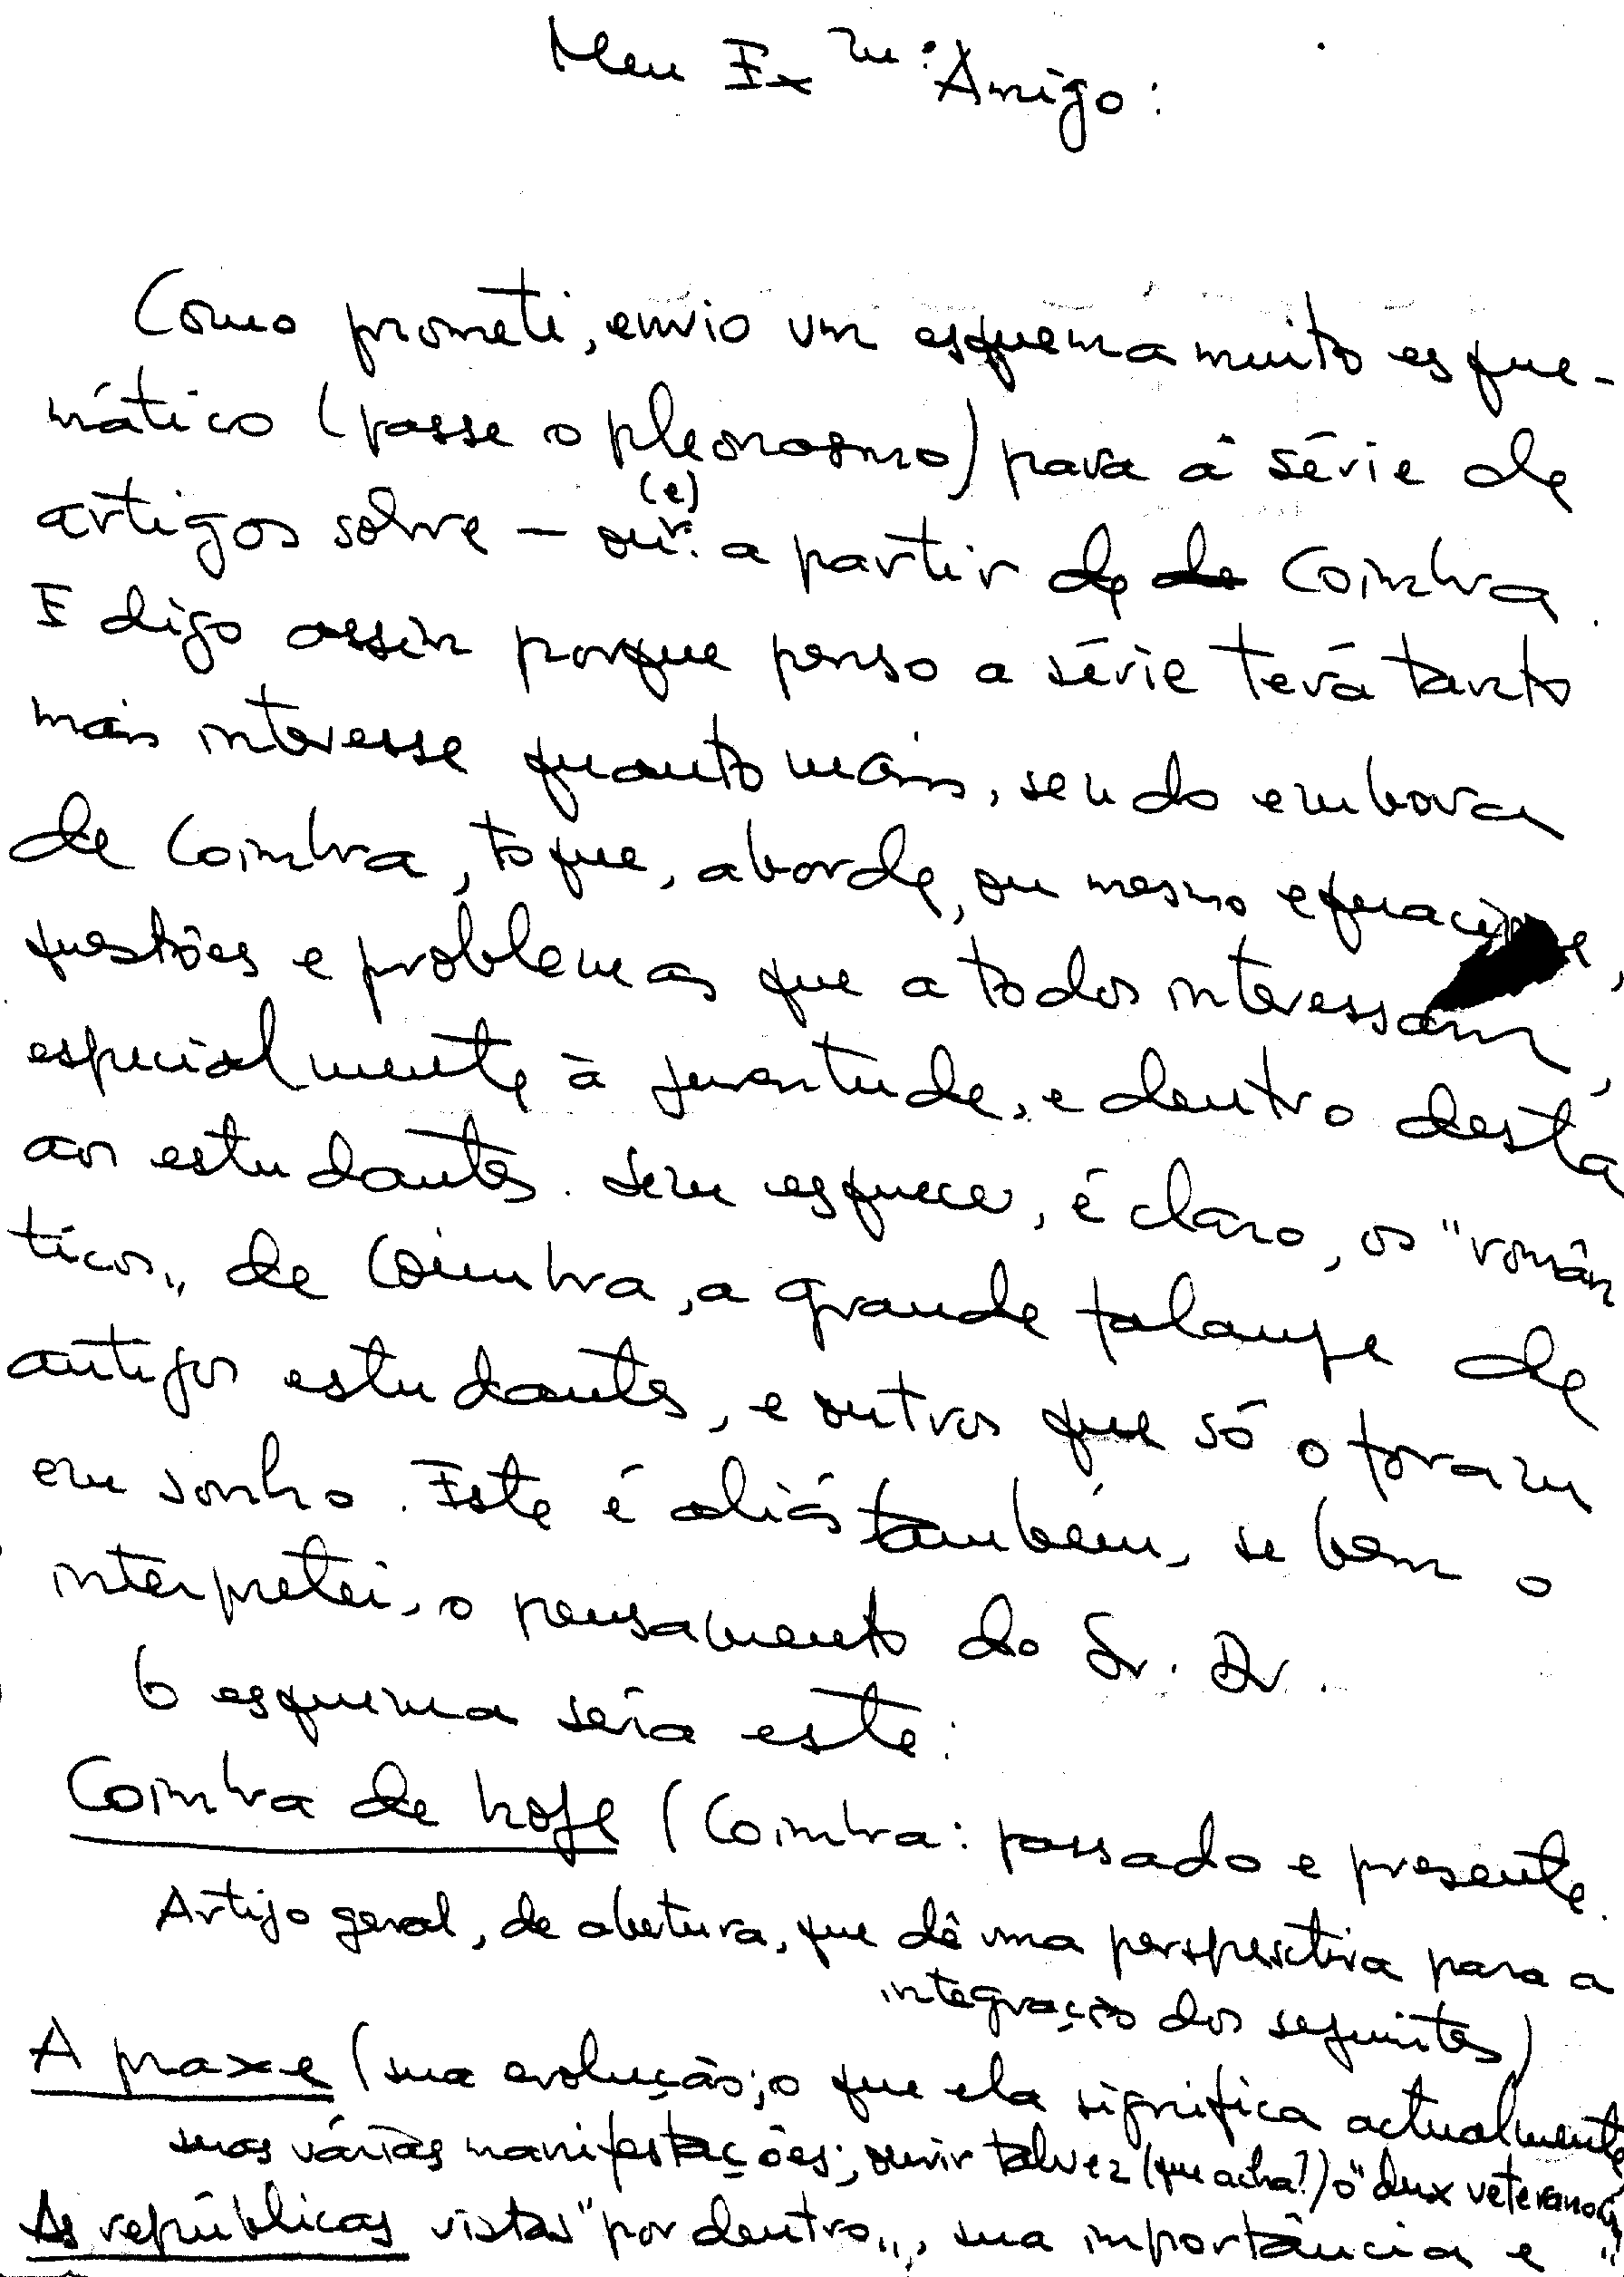 Meu Exmº Amigo:
Como prometi, envio um esquema muito esque-
mático (passe o pleonasmo) para a série de
artigos sobre — ou (e) a partir de de Coimbra.
E digo assim porque penso a série terá tanto
mais interesse quanto mais, sendo embora
de Coimbra, toque, aborde, ou mesmo equacione,
questões e problemas que a todos interessam,
especialmente à juventude, e dentro desta
aos estudantes. Sem esquecer, é claro, os "român
ticos" de Coimbra, a grande falange de
antigos estudantes, e outros que só o foram
em sonho. Este é aliás também, se bem o
interpretei, o pensamento do Sr. Dr.
O esquema seria este:
Coimbra de hoje (Coimbra: passado e presente.
Artigo geral, de abertura, que dê uma perspectiva para a
integração dos seguintes)
A praxe (sua evolução; o que ela significa actualmente
suas várias manifestações; ouvir talvez (que acha?) o "dux veteranorum"
As repúblicas vistas "por dentro", sua importância e "